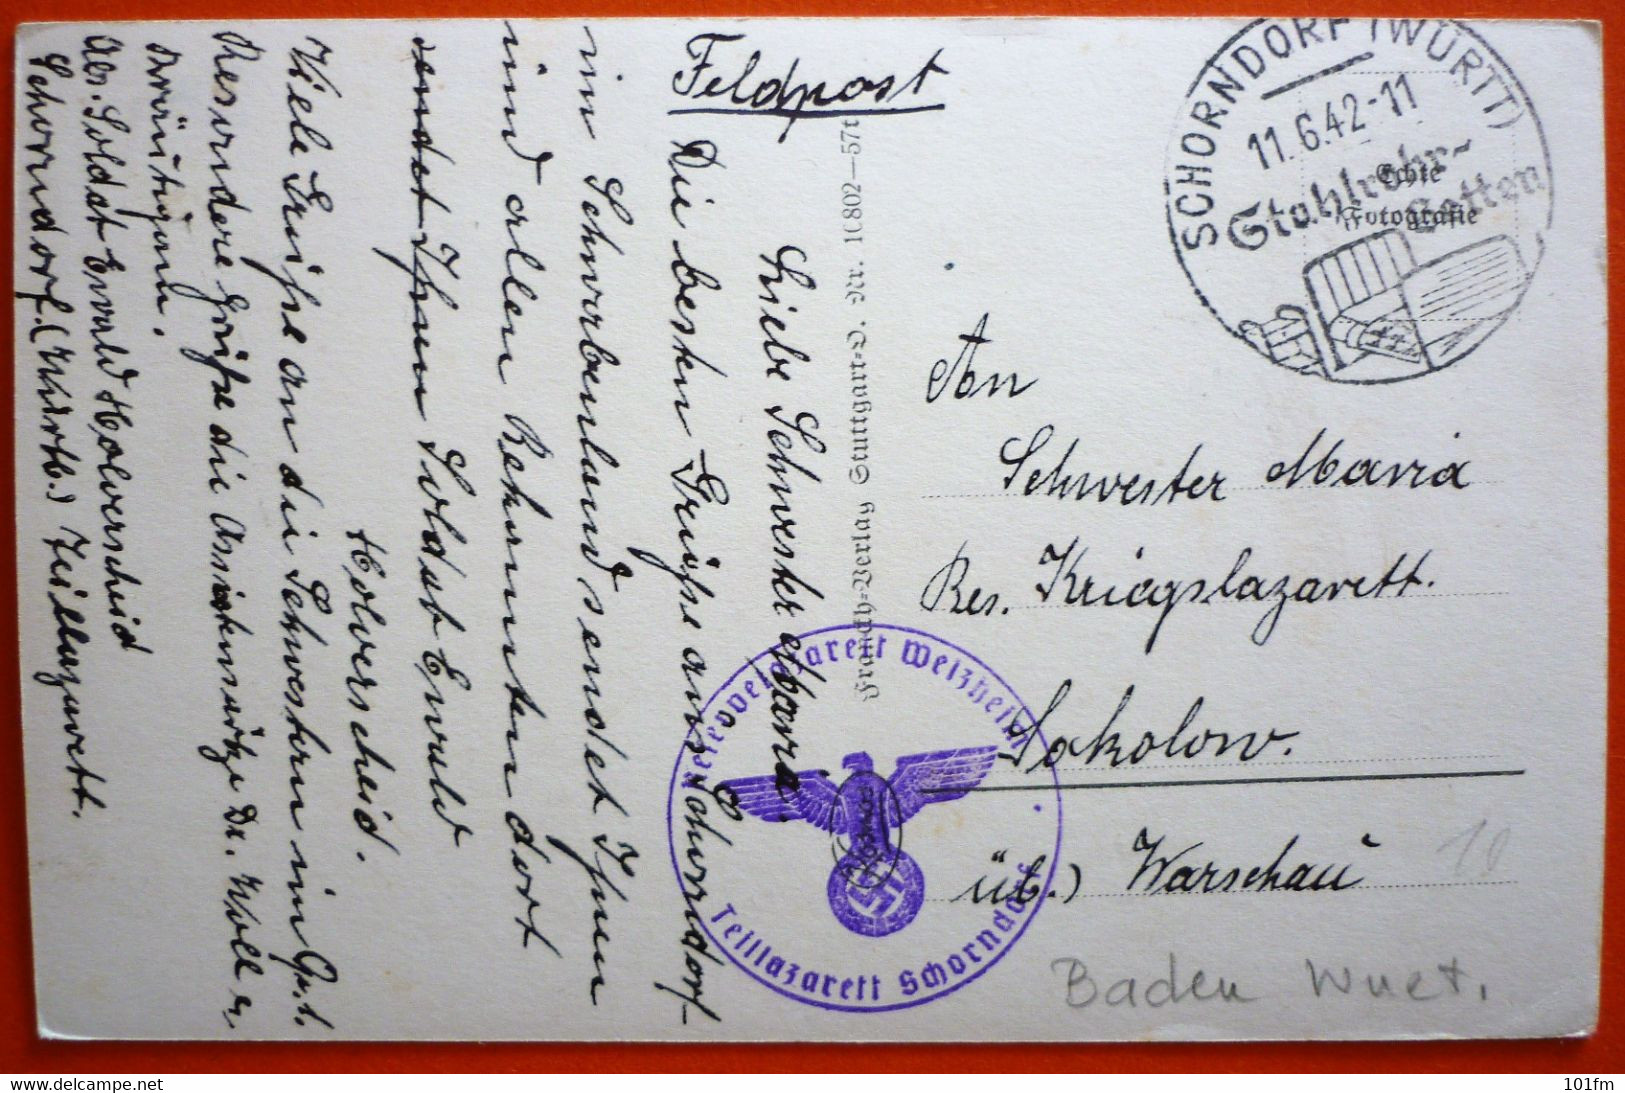 Feldpost
SCHORNDORF (WÜRTT)
11.6.42-11
Stahlrohr-
Betten
Echte
Fotografie
An
Schwester Maria
Res. Kriegslazarett.
Sokolow.
üb.) Warschau
10
Baden Wuet.
Liebe Schwester Maria.
Die besten Grüße aus Schorndorf
im Schwabenland sendet Ihnen
und allen Bekannten dort
sendet Ihnen Soldat Ewald
Holverscheid.
Viele Grüße an die Schwestern im
Besondere Grüße die
Bräutigam.
Abs. Soldat Ewald Holverscheid
Schorndorf. (Württb.) Teillazarett.
Verlag Stuttgart-O. Nr. 10802-57t
Reservelazarett Welzheim
Teillazarett Schorndorf
101fm